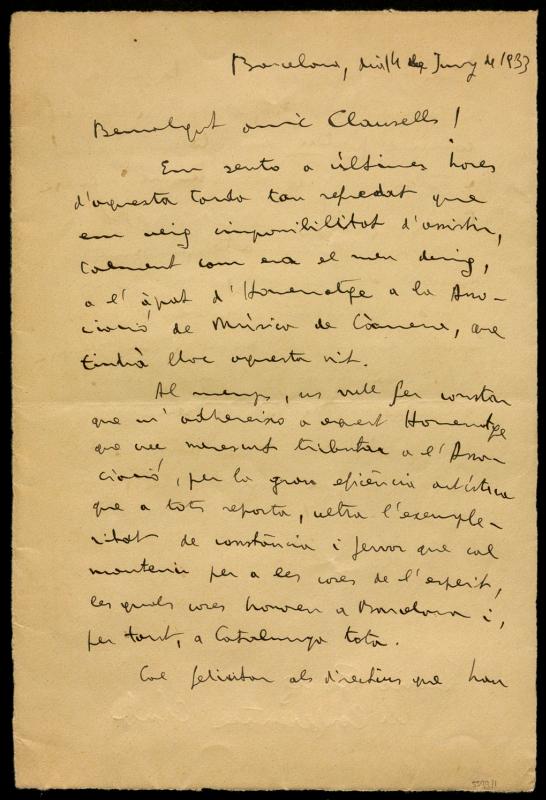 Barcelona, dia 14 de Juny de 1933
Benvolgut amic Clausells!
Em sento a últimes hores
d'aquesta tarda tan refredat que
em veig impossibilitat d'assistir,
talment com era el meu desig,
a l'àpat d'Homenatge a la Asso-
ciació de Música de Càmera, que
tindrà lloc aquesta nit.
Al menys, us vull fer constar
que m'adhereixo a aquest Homenatge
que crec merescut tributar a l'Asso-
ciació, per la gran eficiència artística
que a tots reporta, ultra l'exemple-
ritat de constància i fervor que cal
mantenir per a les coses de l'esperit,
les quals coses honren a Barcelona i,
per tant, a Catalunya tota.
Cal felicitar als directius que han